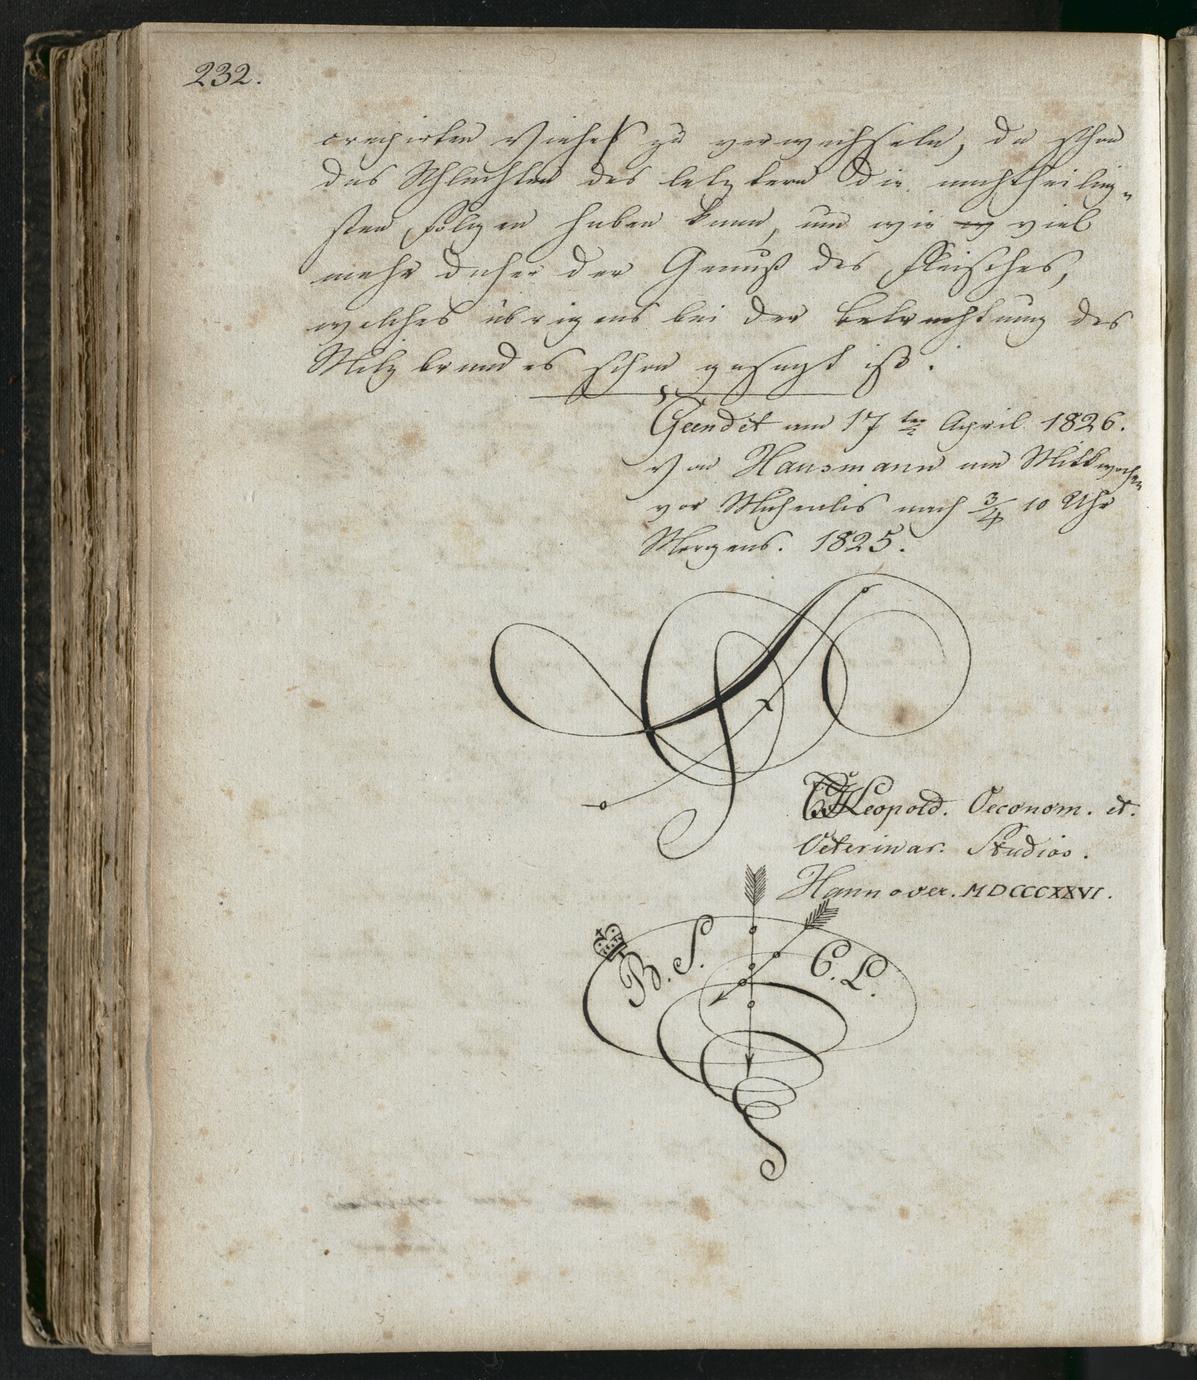 232.
crepirten Viehes zu verwechseln, da schon
das Schlachten des letztern die nachtheilig-
sten Folgen haben kann, um wie viel
mehr daher der Genuß des Fleisches,
welches übrigens bei der Betrachtung des
Milzbrandes schon gesagt ist.
Geendet am 17 ten April 1826.
Von Hausmann am Mittwochen
vor Michaelis nach 3/4 10 Uhr
Morgens. 1825.
Leopold. Oeconom. et.
Veterinar. Studios.
Hannover. MDCCCXXVI.
B. S. C. L.